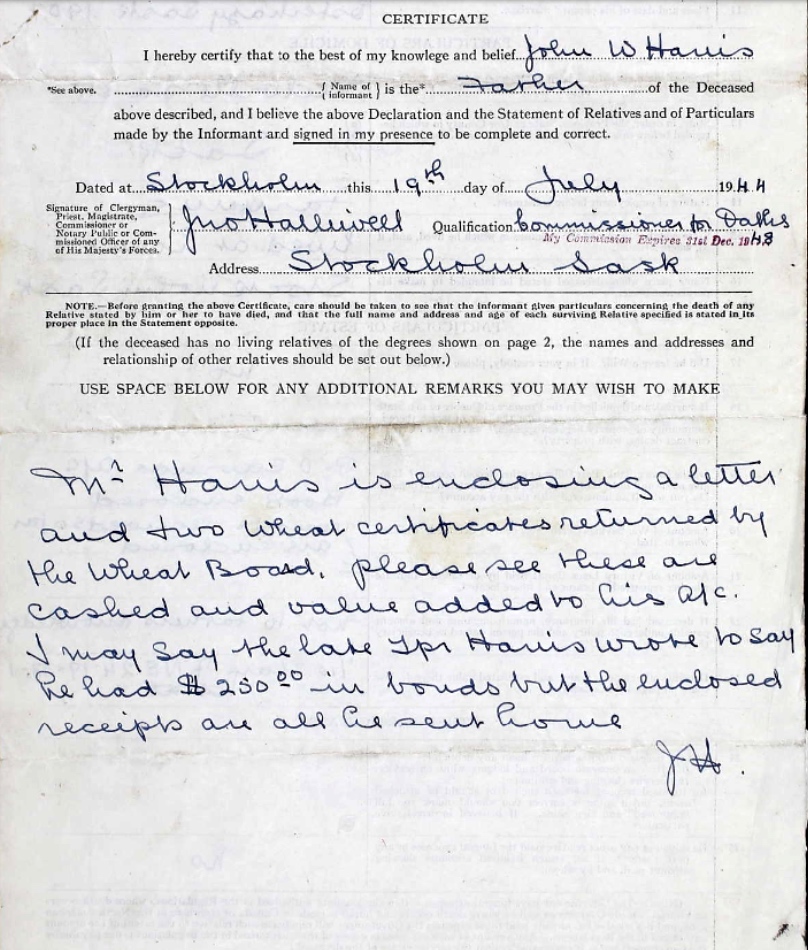 CERTIFICATE
I hereby certify that to the best of my knowlege and belief John W Harris
*See above. { Name of informant } is the* Father of the Deceased
above described, and I believe the above Declaration and the Statement of Relatives and of Particulars
made by the Informant and signed in my presence to be complete and correct.
Dated at Stockholm this 19th day of July 1944
Signature of Clergyman,
Priest, Magistrate,
Commissioner or
Notary Public or Com-
missioned Officer of any
of His Majesty's Forces.
Jno Halliwell Qualification Commissioner for Oaths
My Commission Expires 31st Dec. 1948
Address Stockholm Sask
NOTE.—Before granting the above Certificate, care should be taken to see that the informant gives particulars concerning the death of any
Relative stated by him or her to have died, and that the full name and address and age of each surviving Relative specified is stated in its
proper place in the Statement opposite.
(If the deceased has no living relatives of the degrees shown on page 2, the names and addresses and
relationship of other relatives should be set out below.)
USE SPACE BELOW FOR ANY ADDITIONAL REMARKS YOU MAY WISH TO MAKE
Mr Harris is enclosing a letter
and two Wheat certificates returned by
the Wheat Board. please see these are
cashed and value added to his a/c.
I may say the late Tpr Harris wrote to say
he had $250.00 in bonds but the enclosed
receipts are all he sent home
JH.